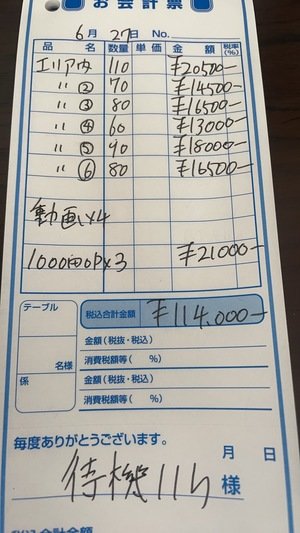 お会計票
6月27日 No.
品名 数量 単価 金額 税率(%)
エリア内 110 ¥20500-
〃② 70 ¥14500-
〃③ 80 ¥16500-
〃④ 60 ¥13000-
〃⑤ 90 ¥18000-
〃⑥ 80 ¥16500-
動画 x4
1000円OP x3 ¥21000-
テーブル 税込合計金額 ¥114.000-
金額(税抜・税込)
名様 消費税額等( %)
係 金額(税抜・税込)
消費税額等( %)
毎度ありがとうございます。 月 日
待機11h 様
税込合計金額